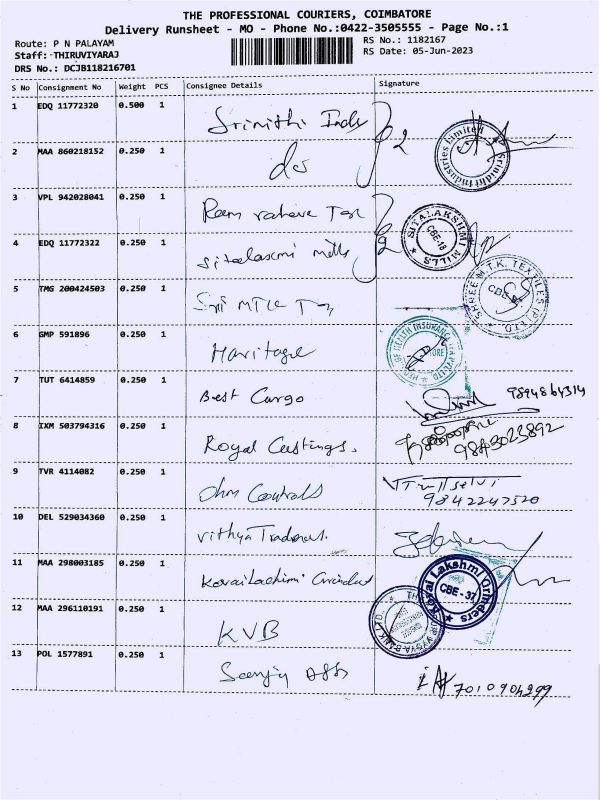 THE PROFESSIONAL COURIERS, COIMBATORE
Delivery Runsheet - MO - Phone No.:0422-3505555 - Page No.:1
Route: P N PALAYAM
RS No.: 1182167
Staff: THIRUVIYARAJ
RS Date: 05-Jun-2023
DRS No.: DCJB118216701
S No Consignment No Weight PCS Consignee Details Signature
1 EDQ 11772320 0.500 1 Srinithi Inds
2 MAA 860218152 0.250 1
3 VPL 942028041 0.250 1 Ram
4 EDQ 11772322 0.250 1 Sitalaxmi mills
5 TMG 200424503 0.250 1 Sri MTK Tex
6 GMP 591896 0.250 1 Heritage
7 TUT 6414859 0.250 1 Best Cargo 9894864314
8 IXM 503794316 0.250 1 Royal Castings. 9843023892
9 TVR 4114082 0.250 1 Ohm Controls 9842247520
10 DEL 529034360 0.250 1 Vithya Traders.
11 MAA 298003185 0.250 1
12 MAA 296110191 0.250 1 KVB
13 POL 1577891 0.250 1 7010904299
Srinidhi Industries Limited
SITALAKSHMI MILLS
CBE-18
SHREE M.T.K. TEXTILES (P) LTD
HEALTH INSURANCE
Kovai Lakshmi Grinders
CBE - 37
BANK LTD.